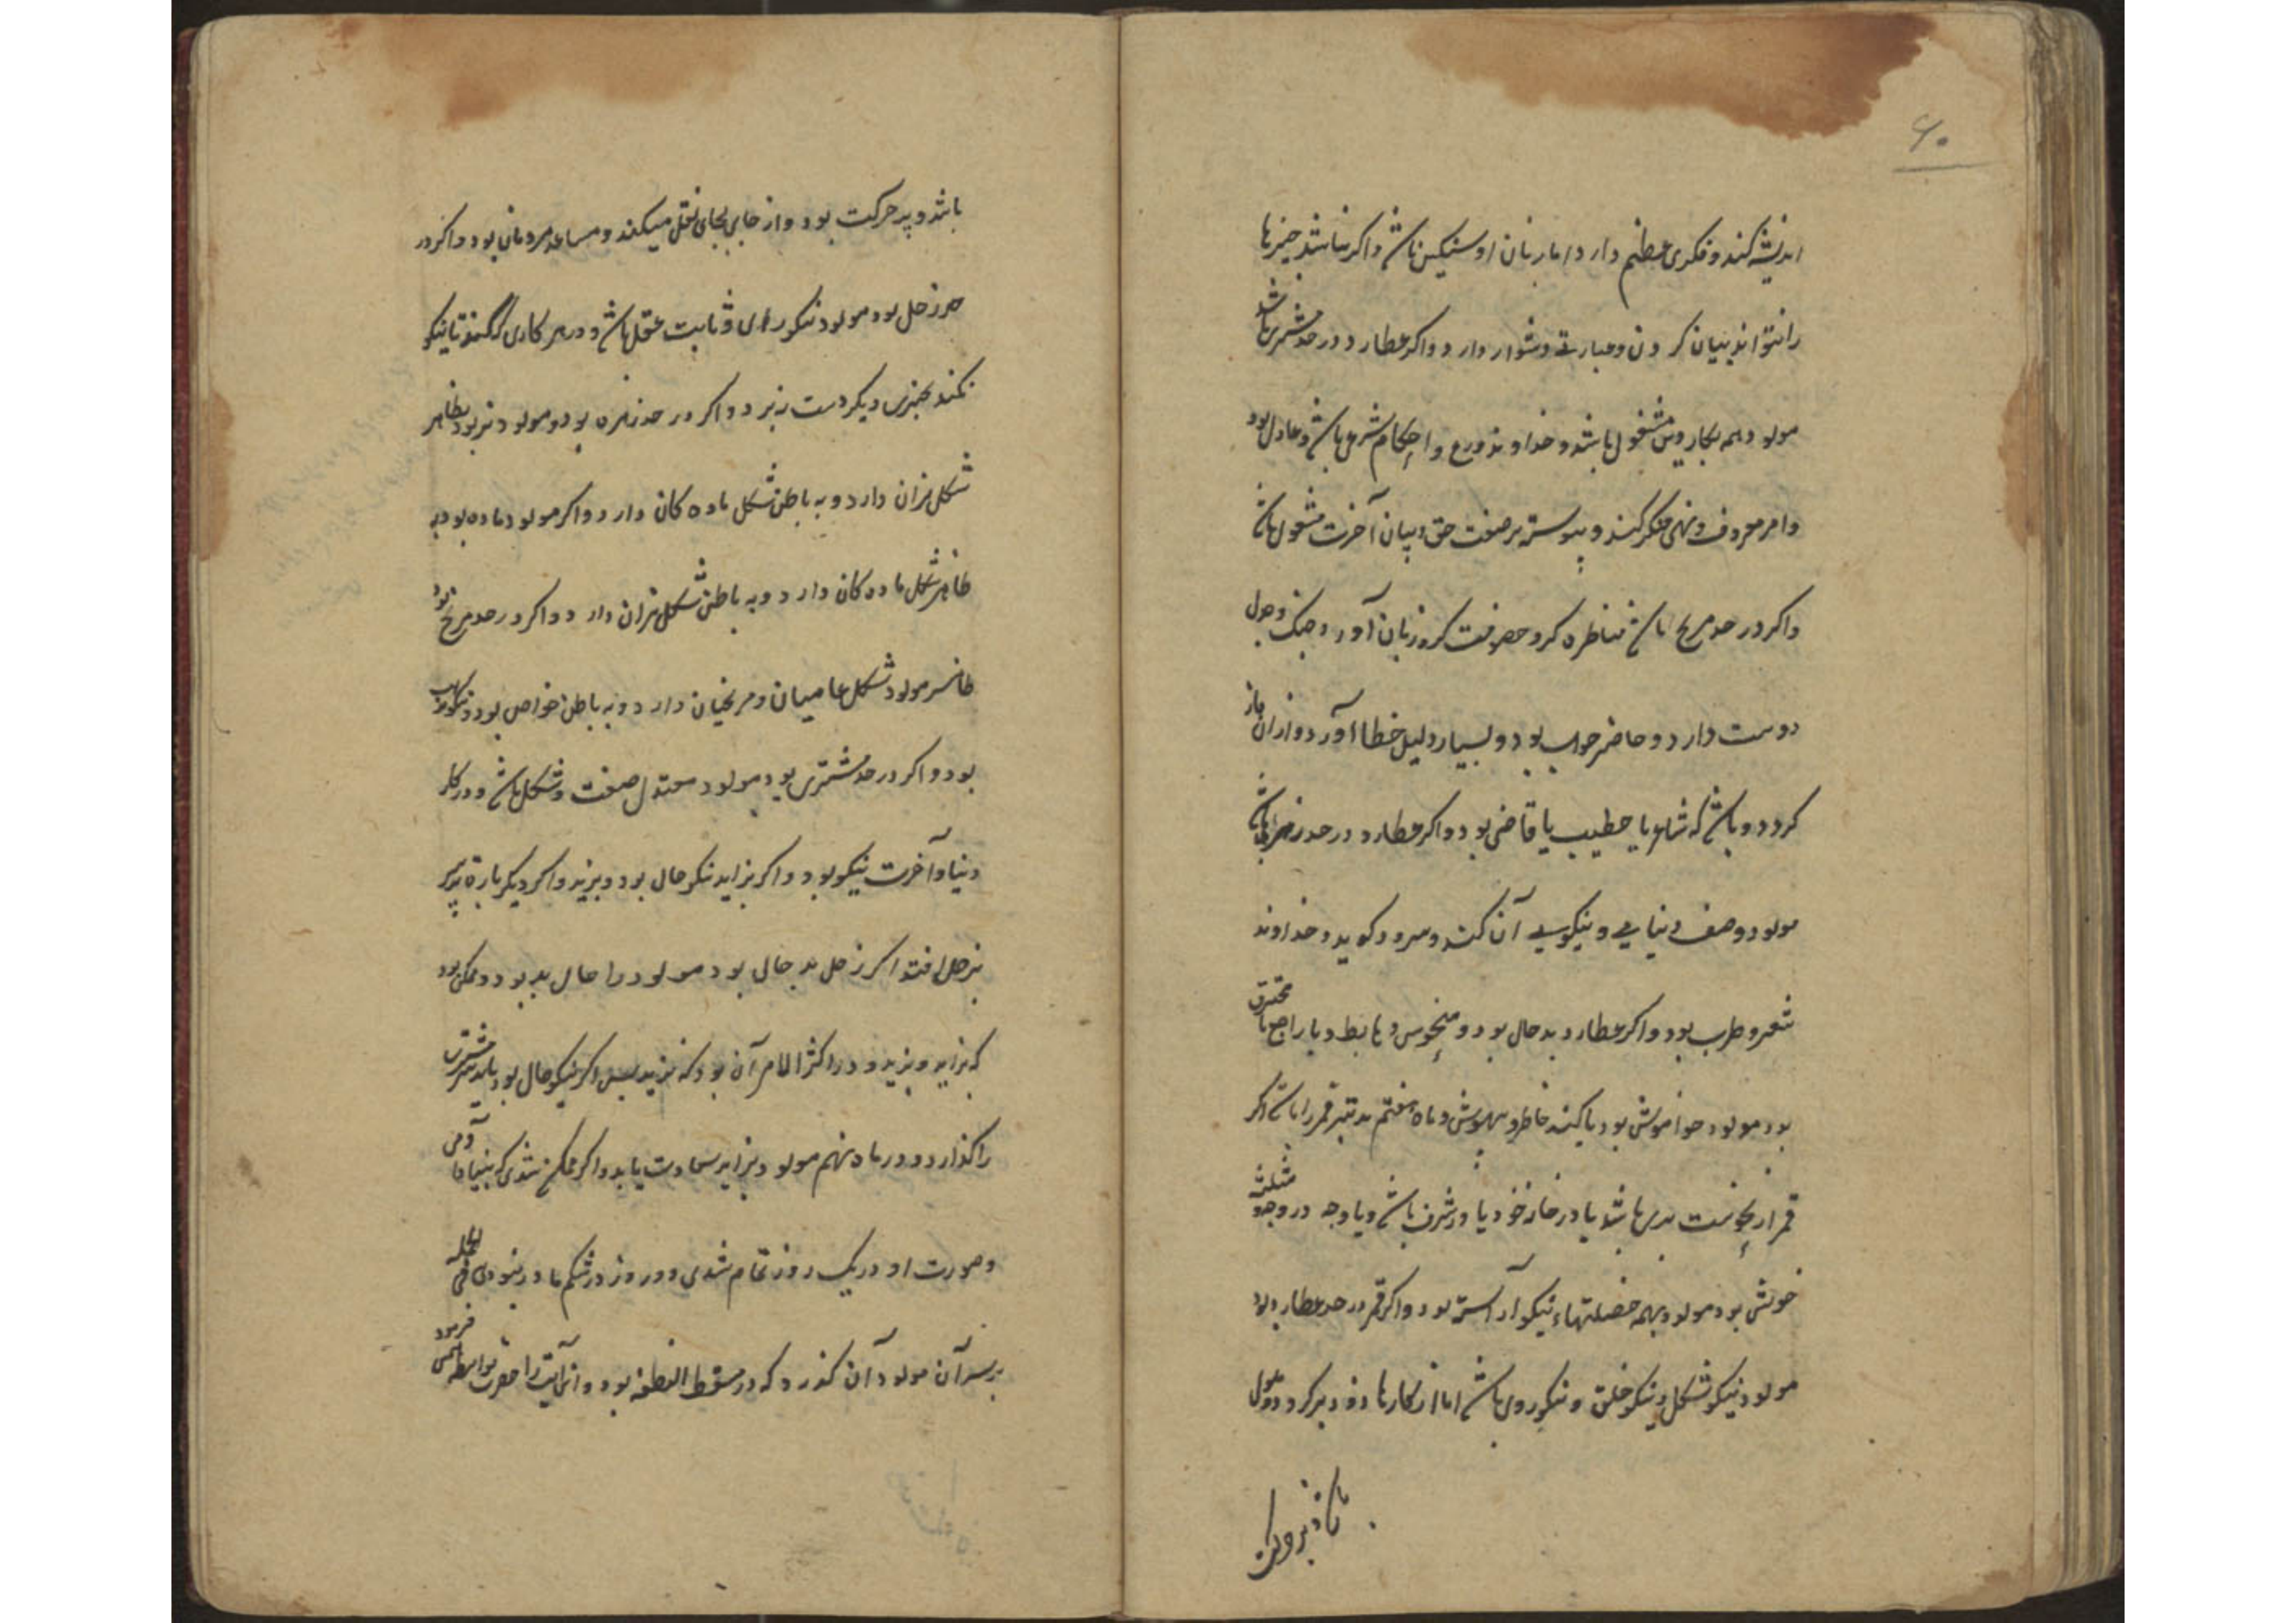 ۶۰
اندیشه کند و فکری عظیم دارد اما زبان او سنگین باشد و اکر نباشد چیزها
را نتواند بیان کردن و عبارت دشوار دارد و اکر عطارد در حد مشتری باشد
مولود همه بکار دین مشغول باشد و خداوند ورع و احکام شرعی باشد و عادل بود
و امر معروف و نهی منکر کند و پیوسته بر صفت حق و بیان آخرت مشغول باشد
و اکر در حد مریخ باشد مناظره کر و زبان آور و جنک و جدل
دوست دارد و حاضر جواب بود و بسیار دلیل خطا آورد و از آن باز
کردد و باشد که شاعر یا خطیب یا قاضی بود و اکر عطارد در حد زهره باشد
مولود وصف دنیایی و نیکویی آن کند و سرود کوید و خداوند
شعر و طرب بود و اکر عطارد بد حال بود و منحوس و هابط و یا راجع یا محترق
بود مولود فراموش بود یا کند خاطر و بیهوش و ماه هفتم تدبیر قمر را باشد اکر
قمر از نحوست بری باشد یا در خانه خود یا در شرف باشد و یا وجه در وجه مثلثه
خویش بود مولود بهمه خصلتهاء نیکو آراسته بود و اکر قمر در حد عطارد بود
مولود نیکو شکل و نیکو خلق و نیکو روی باشد اما از کارها زود دیر کردد و ملول
باشد و پر حرکت
باشد و پر حرکت بود و از جای بجای نقل میکند و مساعد مردمان بود و اکر در
حد زحل بود مولود نیکو رای و ثابت عقل باشد و در هر کاری که کند تا نیکو
نکند بچیزی دیکر دست نبرد و اکر در حد زهره بود و مولود نر بود بظاهر
شکل نران دارد و به باطن شکل ماده کان دارد و اکر مولود ماده بود به
ظاهر شکل ماده کان دارد و به باطن شکل نران دارد و اکر در حد مریخ بود
ظاهر مولود شکل عامیان و مریخیان دارد و به باطن خواص بود و نیکو
بود و اکر در حد مشتری بود مولود معتدل صفت و شکل باشد و در کار
دنیا و آخرت نیکو بود و اکر بزاید نیکو حال بود و بزید و اکر دیکر باره تدبیر
بزحل افتد اکر زحل بد حال بود مولود را حال بد بود و ممکن بود
که بزاید و بزید و در اکثر الامر آن بود که نزید پس اکر نیکو حال بود تدبیر مشتری
را کذارد و در ماه نهم مولود بزاید سعادت یابد و اکر ممکن شدی که بنیاد آدمی
و صورت او در یک روز تمام شدی و دو روز در شکم مادر نبودی فی الجمله
بر سر آن مولود آن کذرد که در مسقط النطفه بود و این آیت را حضرت فرمود